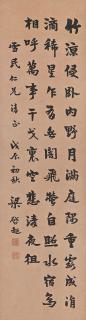 竹涼侵卧内野月滿庭隅重露成涓
滴稀星乍有無暗飛螢自照水宿鳥
相呼萬事干戈裏空悲清夜徂
雪民仁兄 正 戊辰初秋 梁啓超